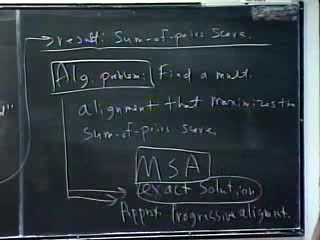 result: Sum-of-pairs score.
Alg. problem: Find a mult.
alignment that maximizes the
sum-of-pairs score.
MSA
exact solution
Approx: Progressive alignment.